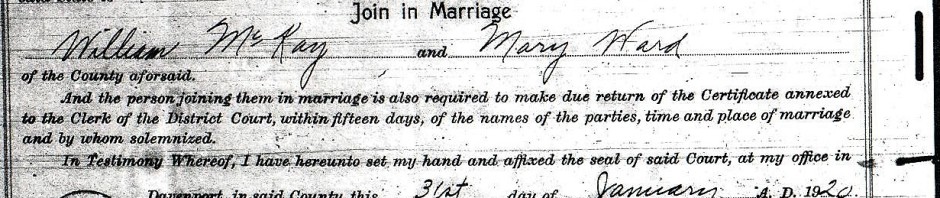 Join in Marriage
William McKay and Mary Ward
of the County aforsaid.
And the person joining them in marriage is also required to make due return of the Certificate annexed
to the Clerk of the District Court, within fifteen days, of the names of the parties, time and place of marriage
and by whom solemnized.
In Testimony Whereof, I have hereunto set my hand and affixed the seal of said Court, at my office in
Davenport, in said County this 31st day of January A. D. 1920.